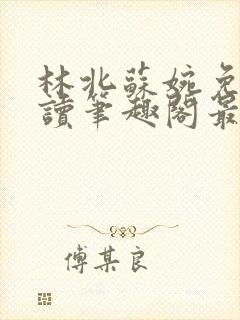 林北蘇婉免
讀筆趣閣最
傅某良